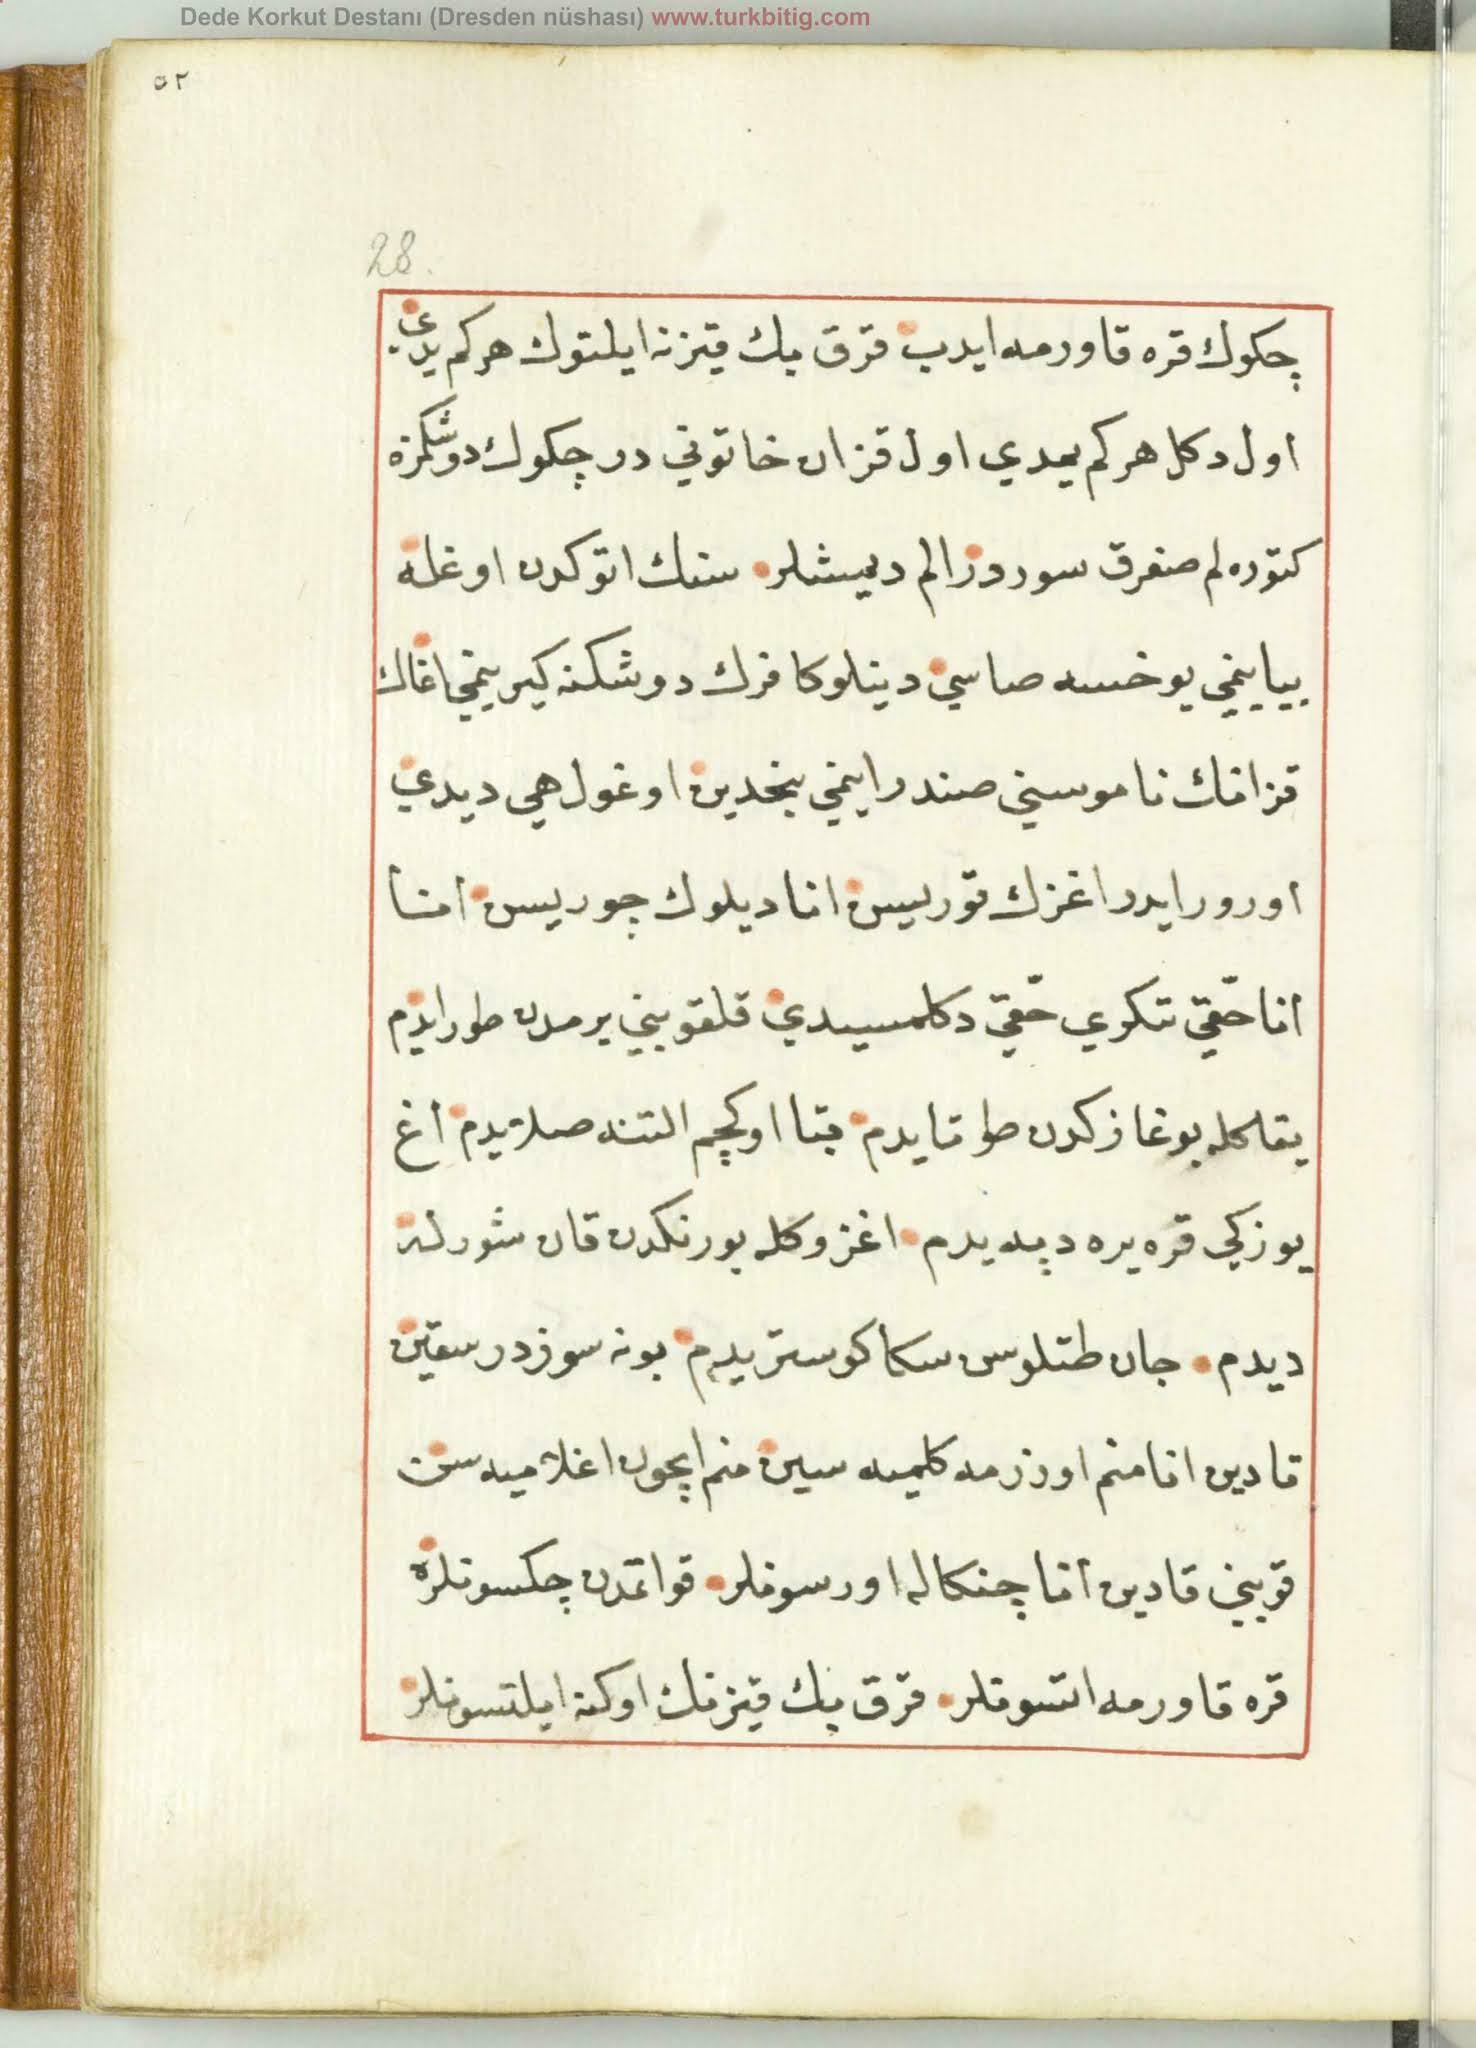 Dede Korkut Destanı (Dresden nüshası) www.turkbitig.com
٥٢
28.
چكوك قره قاورمه ايدب قرق بك قيزنه ايلتوك هركم يدي
اول دكل هركم يمدي اول قزان خاتوني در چكوك دوشكمزه
كتوره لم صغرق سوردزالم ديمشلر سنك اتوكدن اوغله
ييايينمي يوخسه صاسي دينلو كافرك دوشكنه كيرينمي اغاك
قزانك ناموسني صندرايينمي نيجه دين اوغول هي ديدي
اورور ايدر اغزك قوريسن انا ديلوك چوريسن انا
انا حقي تنكري حقي دكلمسيدي قلقوبني يرمدن طورايدم
يقاكله بوغازكدن طوتايدم قبا اوكچم التنه صلايدم اغ
يوزكي قره يره دپه يدم اغزوكله بورنكدن قان شورلد
ديدم جان طتلوسن سكا كوسترييدم بونه سوزدر سقين
قادين انا منم اوزرمه كلميه سين منم ايچون اغلاميه سن
قوبني قادين انا چنكاله اورسونلر قو اتمدن چكسونلر
قره قاورمه اتسونلر قرق بك قيزنك اوكنه ايلتسونلر